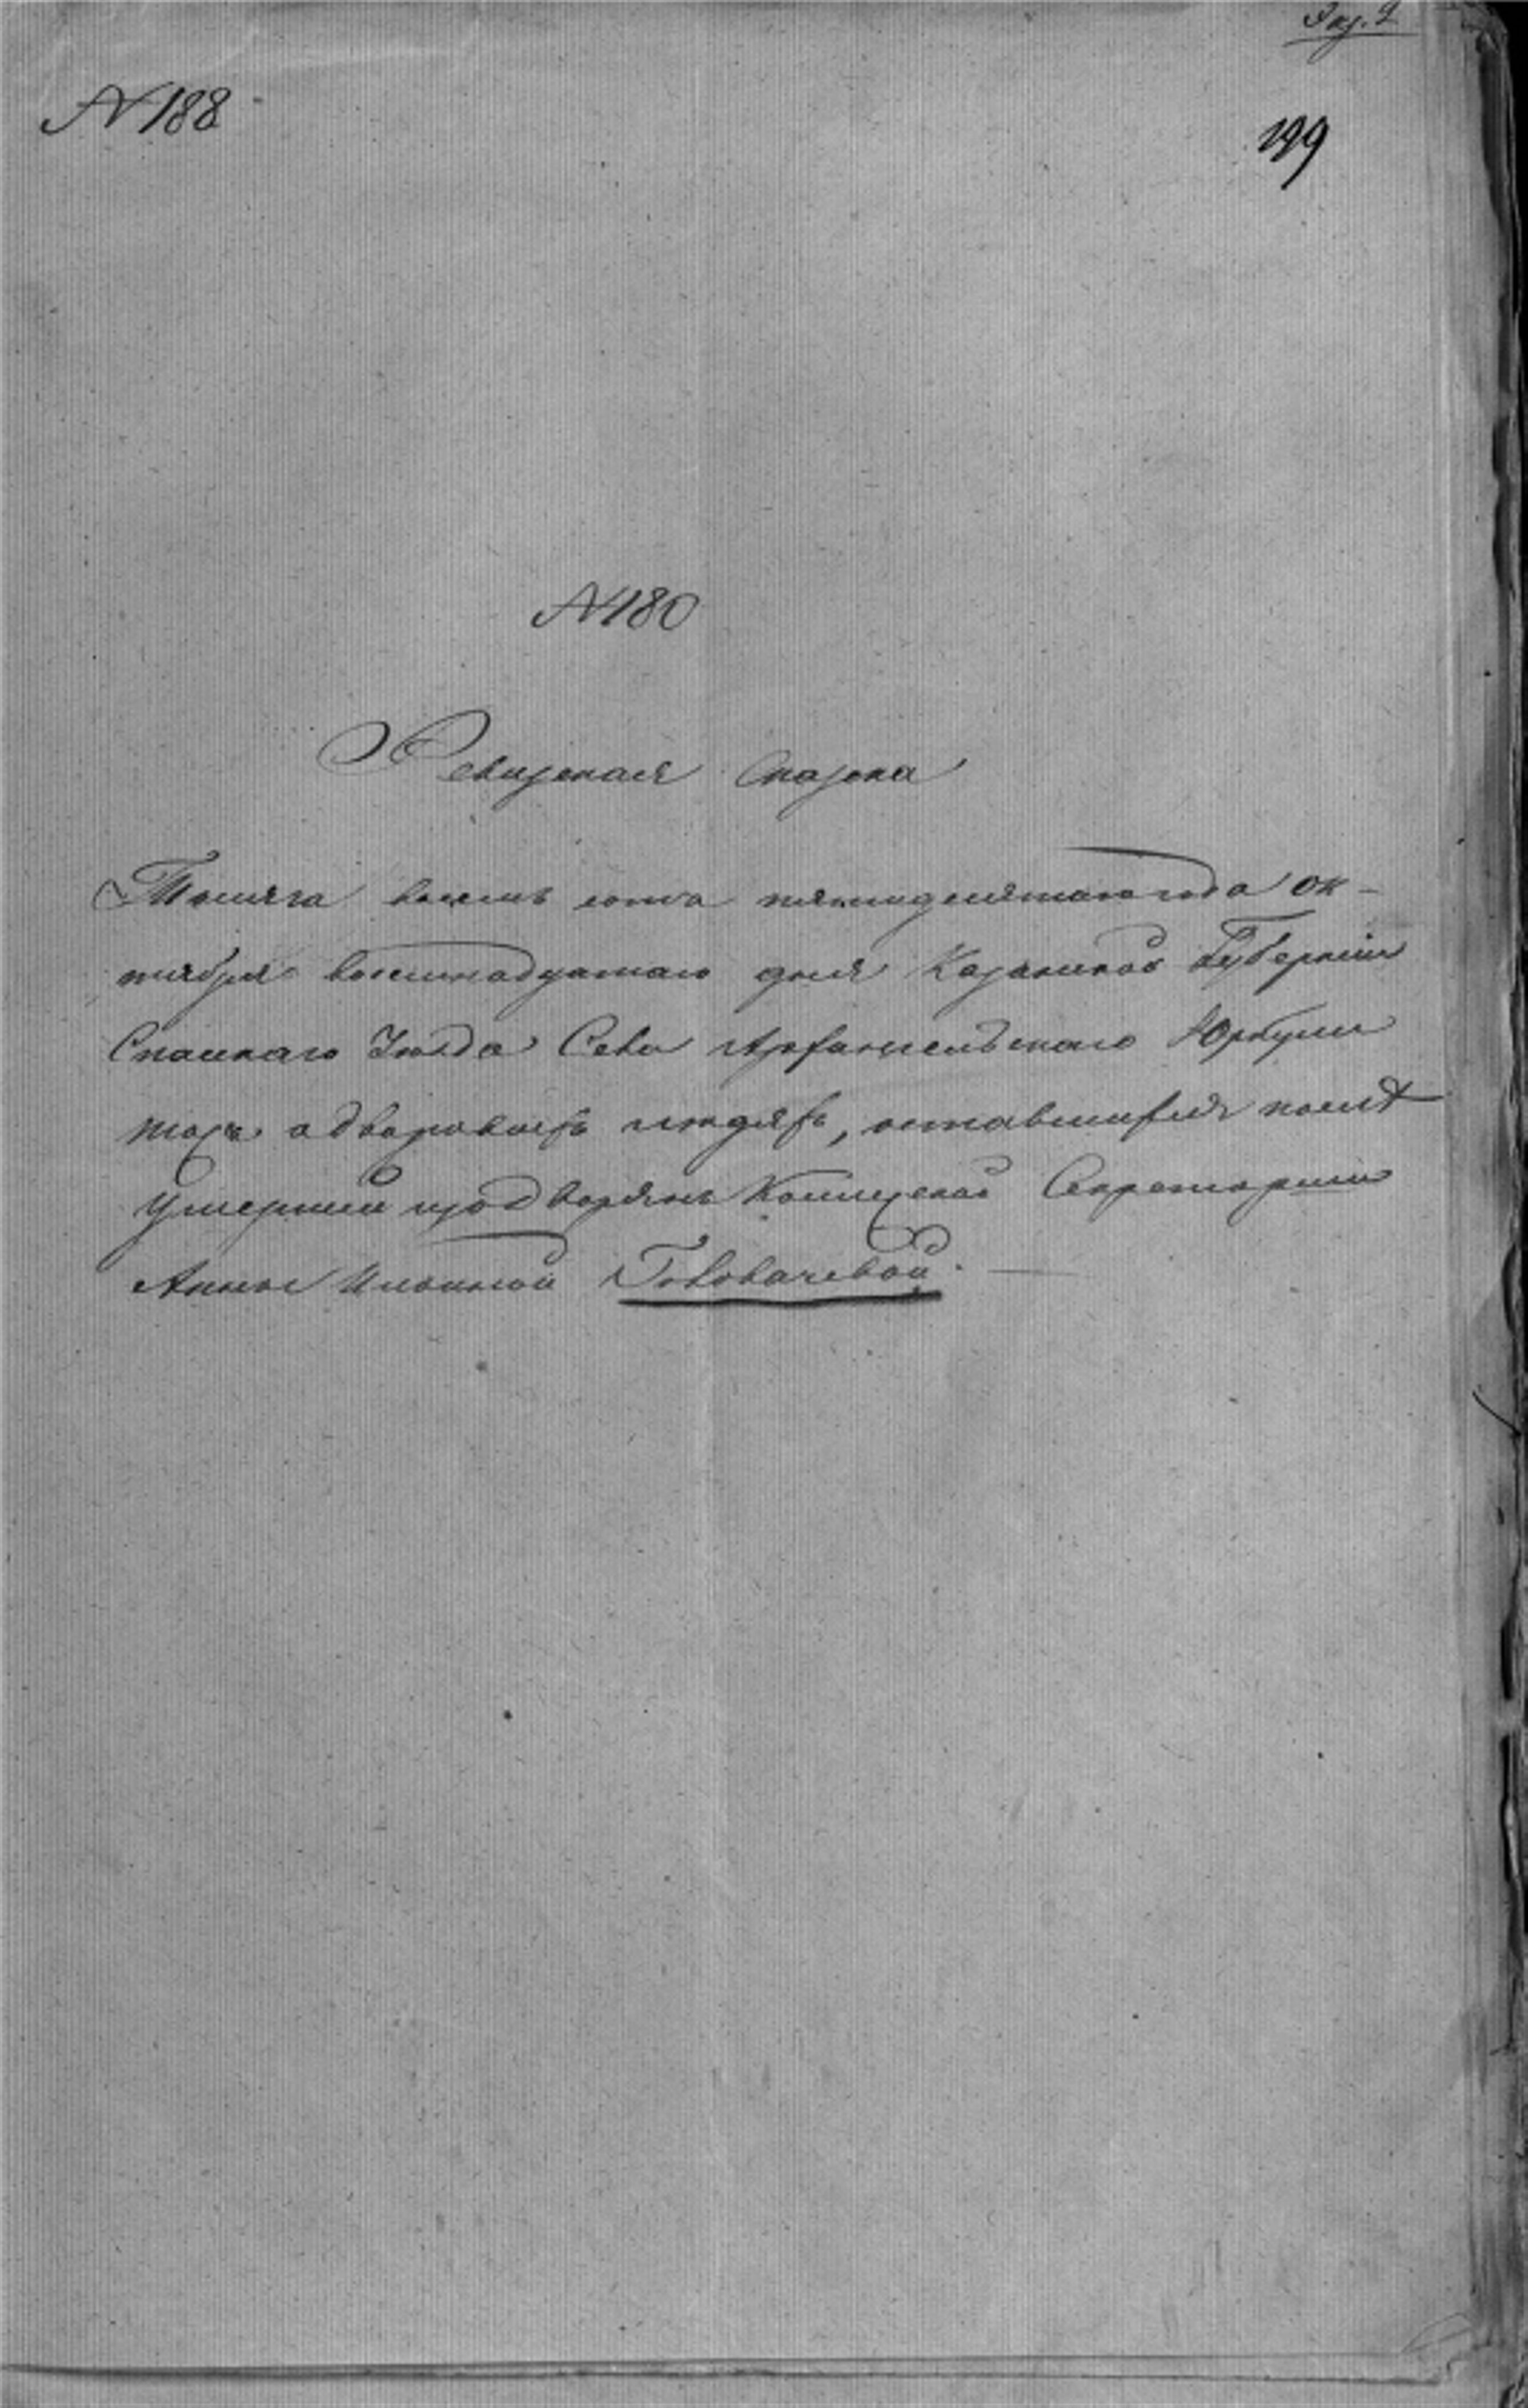 N 188
199
N 180
Ревизская Сказка
Тысяча восемь сотъ пятидесятаго года ок-
тября восемнадцатаго дня Казанской Губерніи
Спаскаго Уезда Села Архангельскаго Юрткули
тожъ о дворовыхъ людяхъ, оставшихся послѣ
умершей изъ дворянъ Коллежской Секретарши
Анны Ильиной Головачевой.